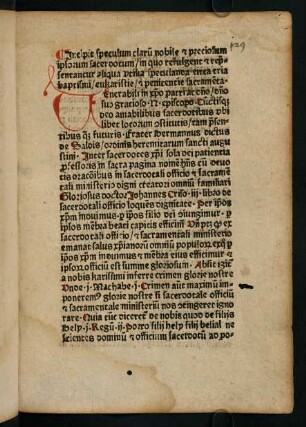 129
Incipit speculum clarũ nobile ⁊ preciosum
ipsorum sacerdotum / in quo refulgent ⁊ rep̃-
sentantur aliqua vtilia speculanda circa tria
baptismi / eukaristie ⁊ penitencie sacramẽta.
Venerabili in xp̃o patri ac dño / dño
suo gracioso · N · episcopo
deo amabilibus sacerdotibus
liber locorum tam p̃sen-
tibus q̃ futuris. frater Hermannus dictus
de Saldis / ordinis heremitarum sancti augu
stini. Inter sacerdotes xp̃i sola dei pacientia
p̃fessoris in sacra pagina nomẽ hñs cũ deuo
tis oracõibus in sacerdotali officio ⁊ sacramẽ
tali ministerio digni ⁊ clarari omniũ familiari
Gloriosus doctor Johannes Criso · iij · libro de
sacerdotali officio loquẽs dignitate. Per ip̃os
xp̃m induimus · p̃ ip̃os filio dei iungimur · p̃
ip̃os mẽbra beati capitis efficimur Vñ p̃t q̃ ex
sacerdotali officio / ⁊ sacramentali ministerio
emanat salus xp̃ianorũ omniũ populorum
ip̃os xp̃m induimus ⁊ mẽbra eius efficimur ⁊
ip̃orum officiũ est summe gloriosum. Absit igit̃
a nobis karissimi inferre crimen glorie nostre
Vnde · j · Machabe · j · Crimen aũt maximũ im-
ponerem⁹ glorie nostre si sacerdotale officiũ
⁊ sacramentale ministeriũ nos ↄtingeret igno
rare. Quia tũc diceret̃ de nobis quod de filijs
Hely · j · Regũ · ij · Porro filij hely filij belial ne
scientes dominũ ⁊ officium sacerdotũ ad po-